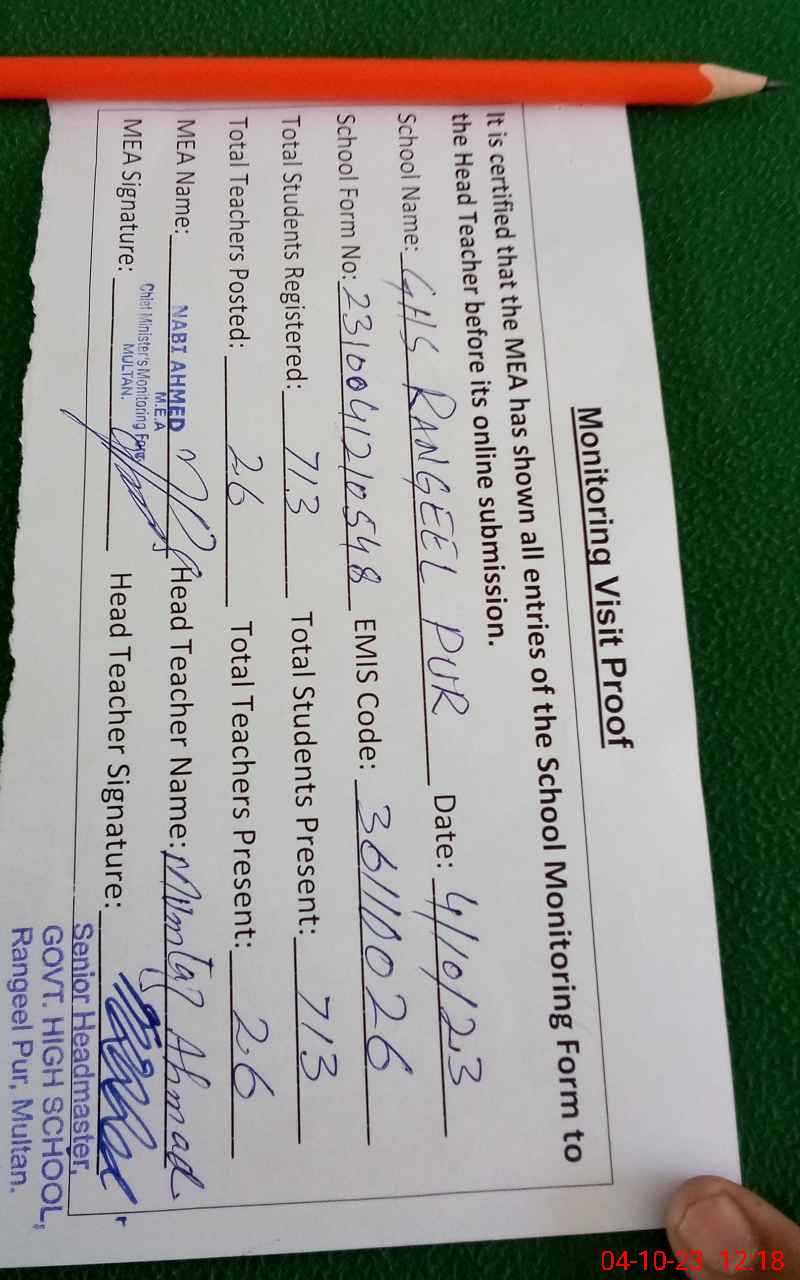 Monitoring Visit Proof
It is certified that the MEA has shown all entries of the School Monitoring Form to
the Head Teacher before its online submission.
School Name: GHS RANGEEL PUR Date: 4/10/23
School Form No: 2310041210548 EMIS Code: 36110026
Total Students Registered: 713 Total Students Present: 713
Total Teachers Posted: 26 Total Teachers Present: 26
MEA Name: NABI AHMED Head Teacher Name: Mumtaz Ahmad
M.E.A
Chief Minister's Monitoring Force
MULTAN.
MEA Signature: Head Teacher Signature:
Senior Headmaster,
GOVT. HIGH SCHOOL,
Rangeel Pur, Multan.
04-10-23 12:18